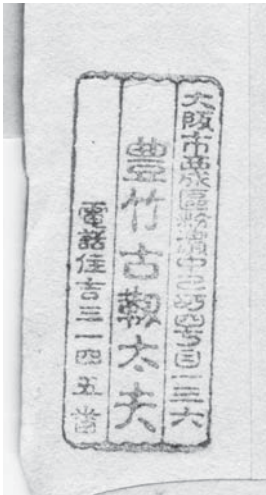 大阪市西成區粉濱中之町四丁目一三六
豊竹古靱太夫
電話住吉三一四五番